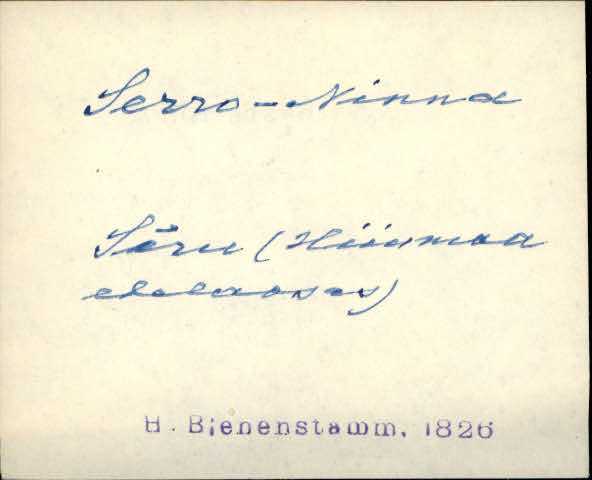 Serro-Ninna
Sõru (Hiiumaa
edelaosas)
H. Bienenstamm, 1826